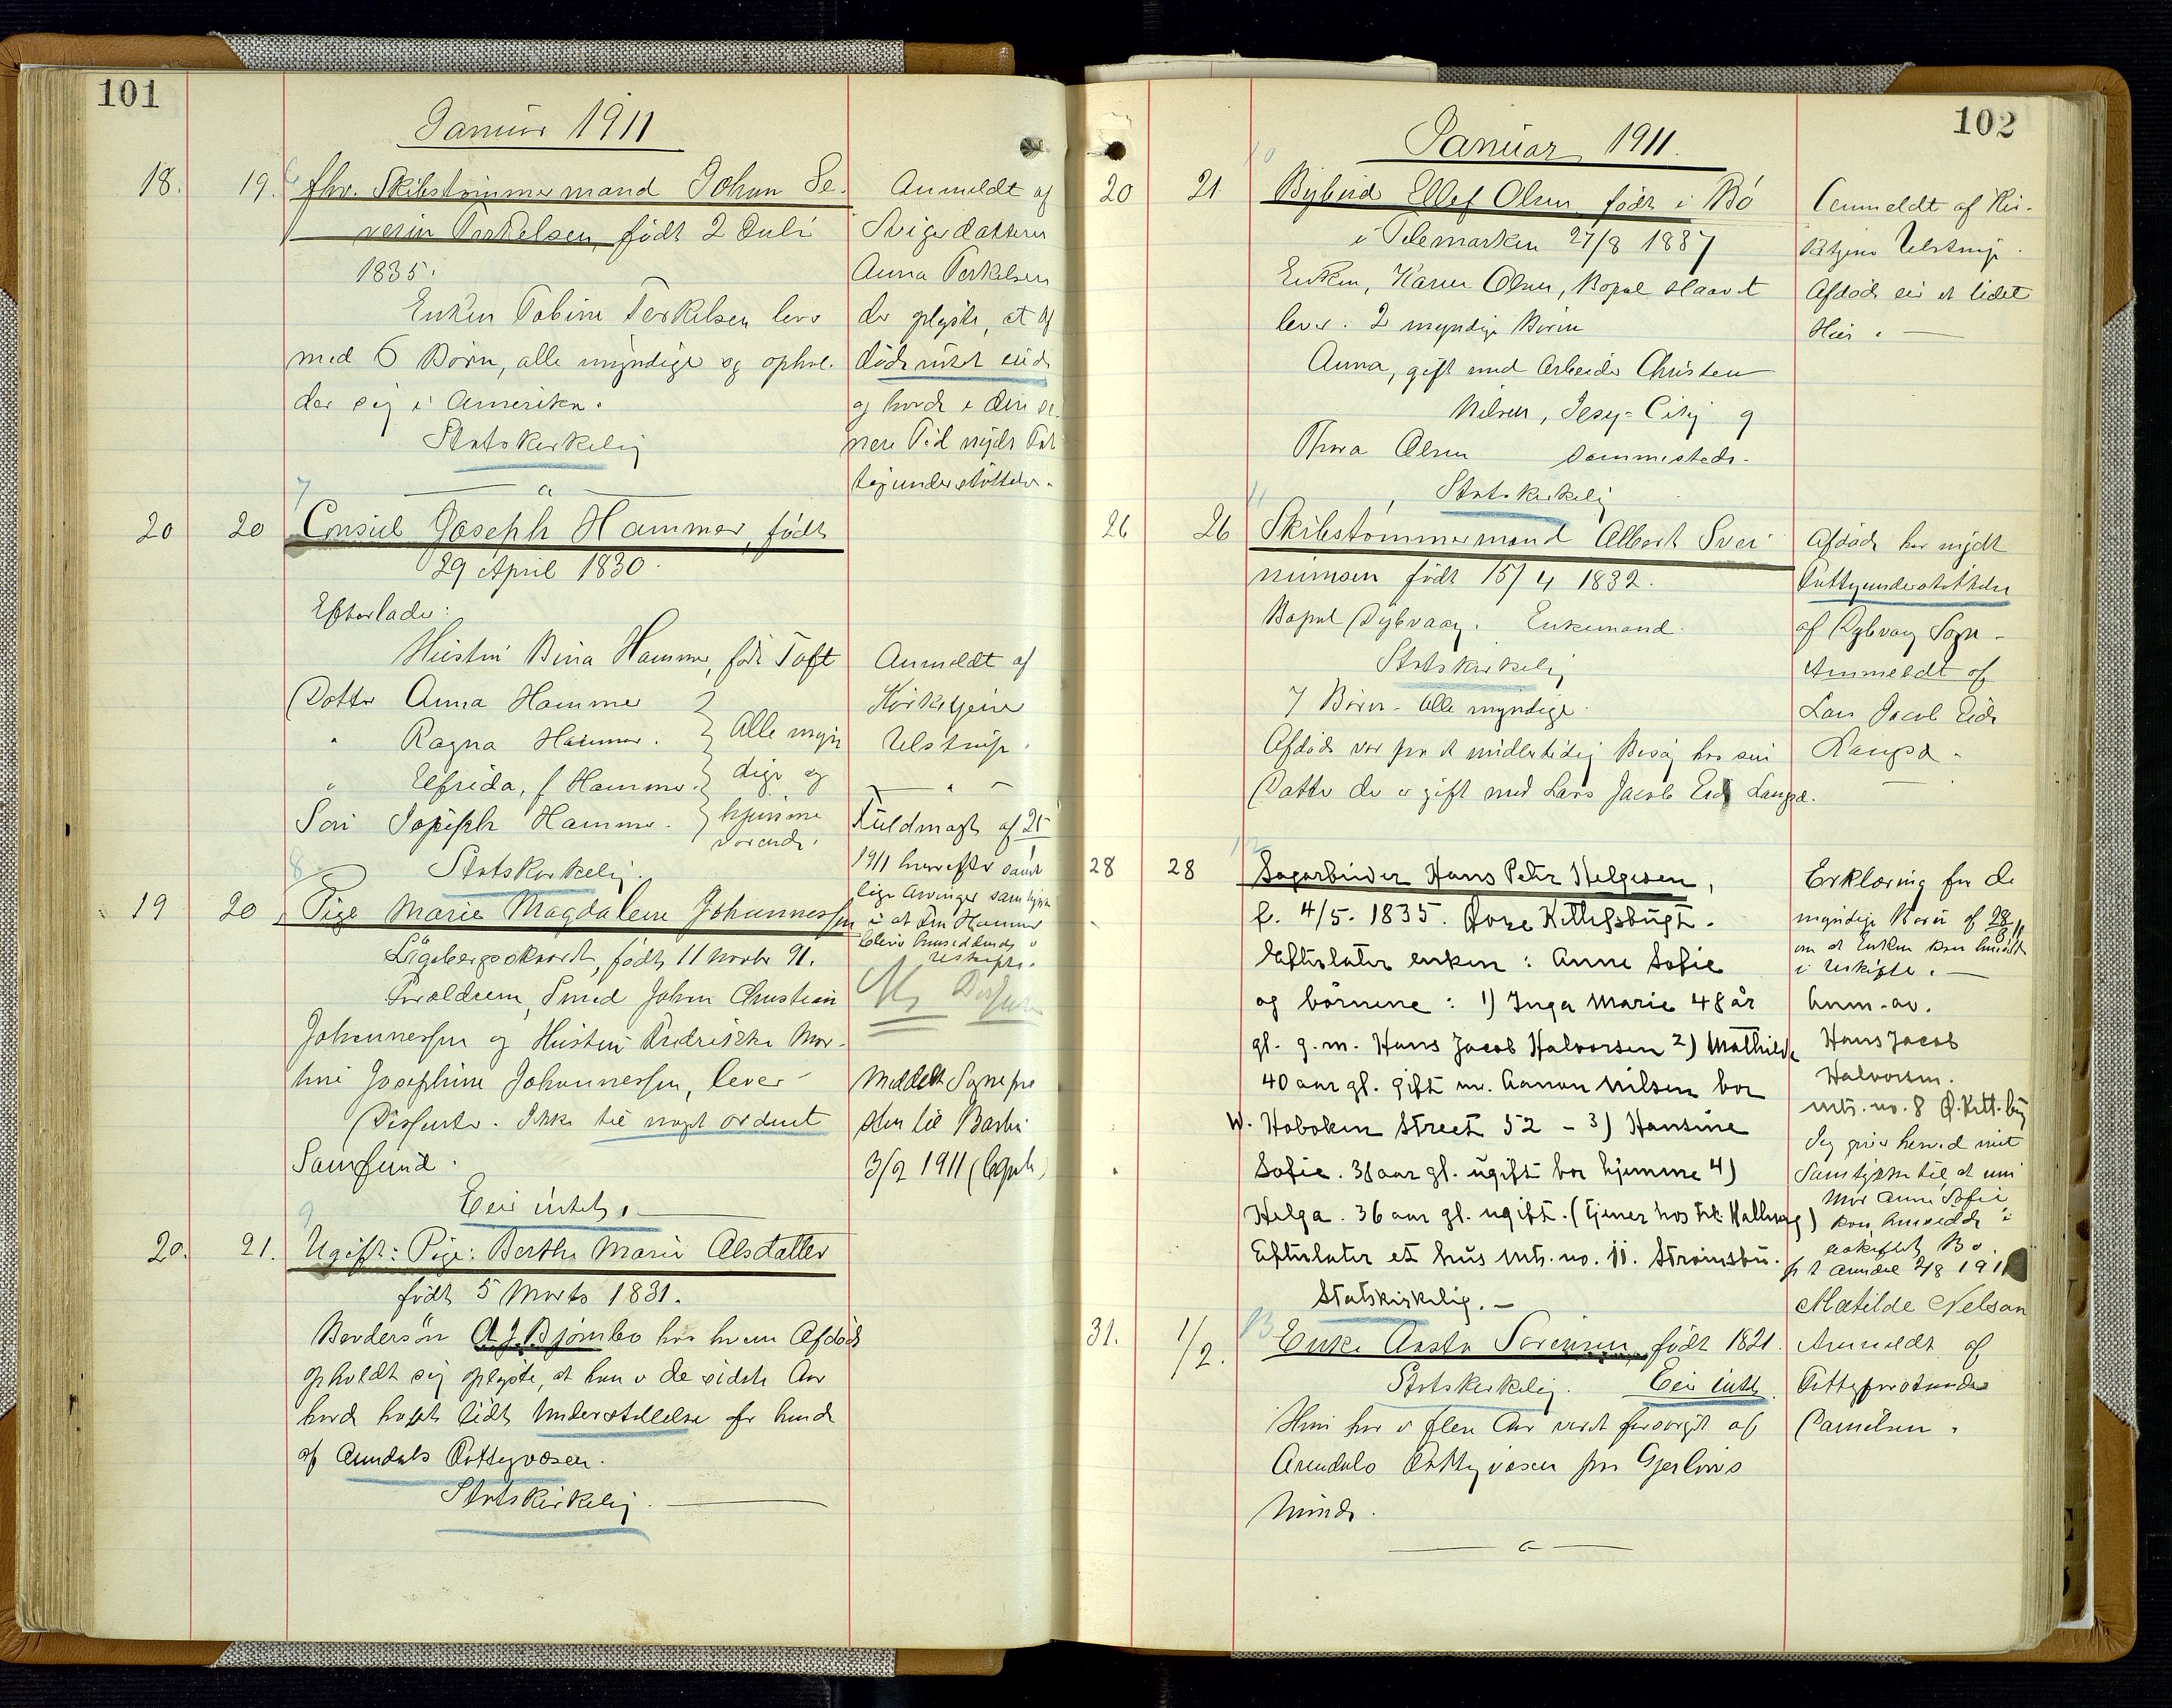 101
Januar 1911
18. 19. fhv. Skibstømmermand Johan Se-
verin Terkelsen, født 2 Juli
1835.
Enken Tobine Terkelsen lever
med 6 Børn, alle myndige og ophol-
der sig i Amerika.
Statskirkelig
Anmeldt af
Svigerdatteren
Anna Terkelsen
der oplyste, at Af
døde intet eiede
og havde i den se-
nere Tid nydt Fat
tigunderstøttelse.
7
20 20 Consul Joseph Hammer, født
29 April 1830.
Efterlader:
Hustru Bina Hammer, født Toft
Datter Anna Hammer
" Ragna Hammer.
" Elfrida, f Hammer.
Søn Joseph Hammer.
Alle myn
dige og
hjemme
værende.
Statskirkelig.
Anmeldt af
Kirketjener
Ulstrup.
Fuldmagt af 25
1911 hvorefter samt
lige Arvinger samtykke
i at Fru Hammer
bliver hensiddende i
uskifte.
8
19 20 Pige Marie Magdalene Johannessen
født 11 Novbr 91.
Forældrene, Smed Johan Christian
Johannessen og Hustru Fredrikke Mar-
tine Josephine Johannessen, lever
Dissenter. Ikke til noget ordnet
Samfund.
Eier intet.
Meddelt Sognepre
sten til Barbu
3/2 1911
9
20. 21. Ugift: Pige: Berthe Marie Olsdatter
født 5 Marts 1831.
A J Bjørnbo hos hvem Afdøde
opholdt sig oplyste, at han i de sidste Aar
havde havt lidt Understøttelse for hende
af Arendals Fattigvæsen.
Statskirkelig.
102
Januar 1911.
10
20 21. Bybud Ellef Olsen født i Bø
i Telemarken 27/8 1837
Enken, Karen Olsen, Bopæl
lever. 2 myndige Børn
Anna, gift med Arbeider Christen
Nilsen, Jesy-City og
Thora Olsen sammesteds.
Statskirkelig
Anmeldt af Kir-
ketjener Ulstrup.
Afdøde eier et lidet
Hus.
11
26 26 Skibstømmermand Albert Svei
nunsen født 15/4 1832.
Bopæl Dybvaag. Enkemand.
Statskirkelig
7 Børn - alle myndige.
Afdøde var paa et midlertidig Besøg hos sin
Datter der er gift med Lars Jacob Eide Langsæ.
Afdøde har nydt
Fattigunderstøttelse
af Dybvaag Sogn -
Anmeldt af
Lars Jacob Eide
Langsæ.
12
28 28 Hans Peter Helgesen,
f. 4/5. 1835. Øvre Kittelsbugt.
Efterlater enken: Anne Sofie
og børnene: 1) Inga Marie 48 år
gl. g.m. Hans Jacob Halvorsen 2) Mathilde
40 aar gl. gift m. Aanon Nilsen bor
W. Hoboken Street 52 - 3) Hansine
Sofie. 38 aar gl. ugift bor hjemme 4)
Helga. 36 aar gl. ugift. (tjener hos Frk. Kallevig)
Efterlater et hus mtr. no. 11. Strømsbu.
Statskirkelig. -
Erklæring fra de
myndige Børn af 28
om at Enken kan hensidde
i uskifte.
Anm. av.
Hans Jacob
Halvorsen.
mtr. no. 8 Ø. Kitt.bug
Jeg giver herved mit
Samtykke til, at min
Mor Anne Sofie
kan hensidde i
uskiftet Bo.
p t Arendal 2/8 1911
Matilde Nelson
13
31. 1/2. Enke Aaste Sørensen, født 1821.
Statskirkelig. Eier intet.
Hun har i flere Aar været forsørget af
Arendals Fattigvæsen paa Gjerløvs
Minde.
Anmeldt af
Fattigforstander
Danielsen.